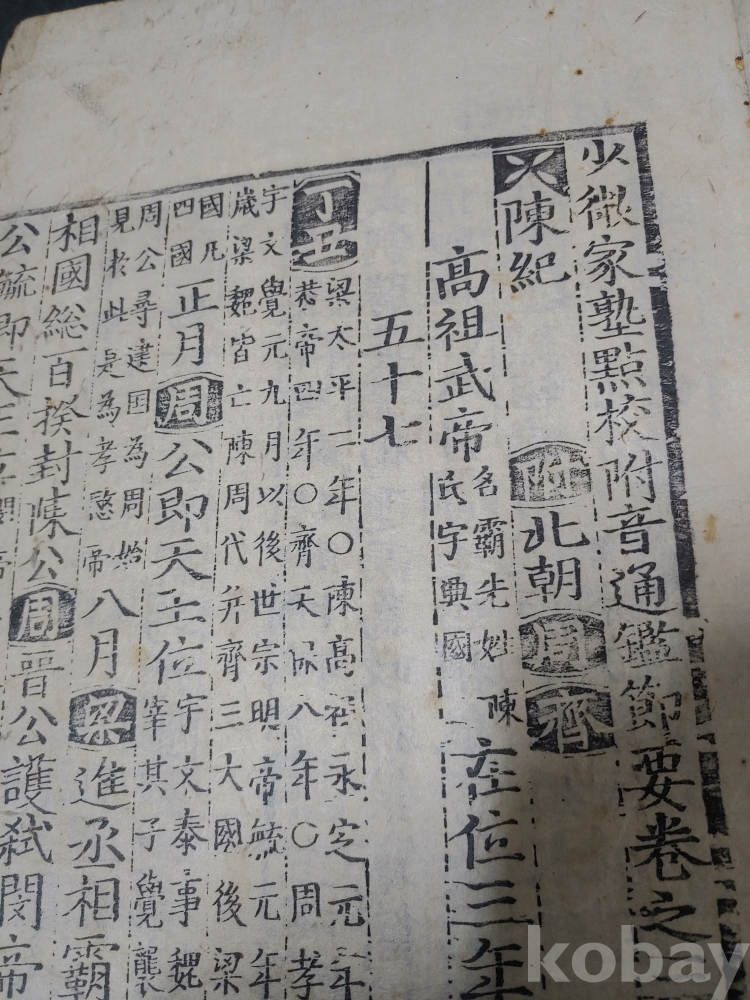 少微家塾點校附音通鑑節要卷之
陳紀 附北朝周齊
高祖武帝 名霸先姓陳氏字興國 在位三年
五十七
丁丑 梁太平二年○陳高祖永定元年
恭帝四年○齊天保八年○周孝
宇文覺元九月以後世宗明帝毓元年
歲梁魏皆亡陳周代并齊三大國後梁
國凡四國 正月周公即天王位 宇文泰事魏
宰其子覺襲
周公尋建国為周始
見於此是為孝愍帝 八月梁進丞相霸
相國総百揆封陳公周晉公護弑閔帝
公毓即天王